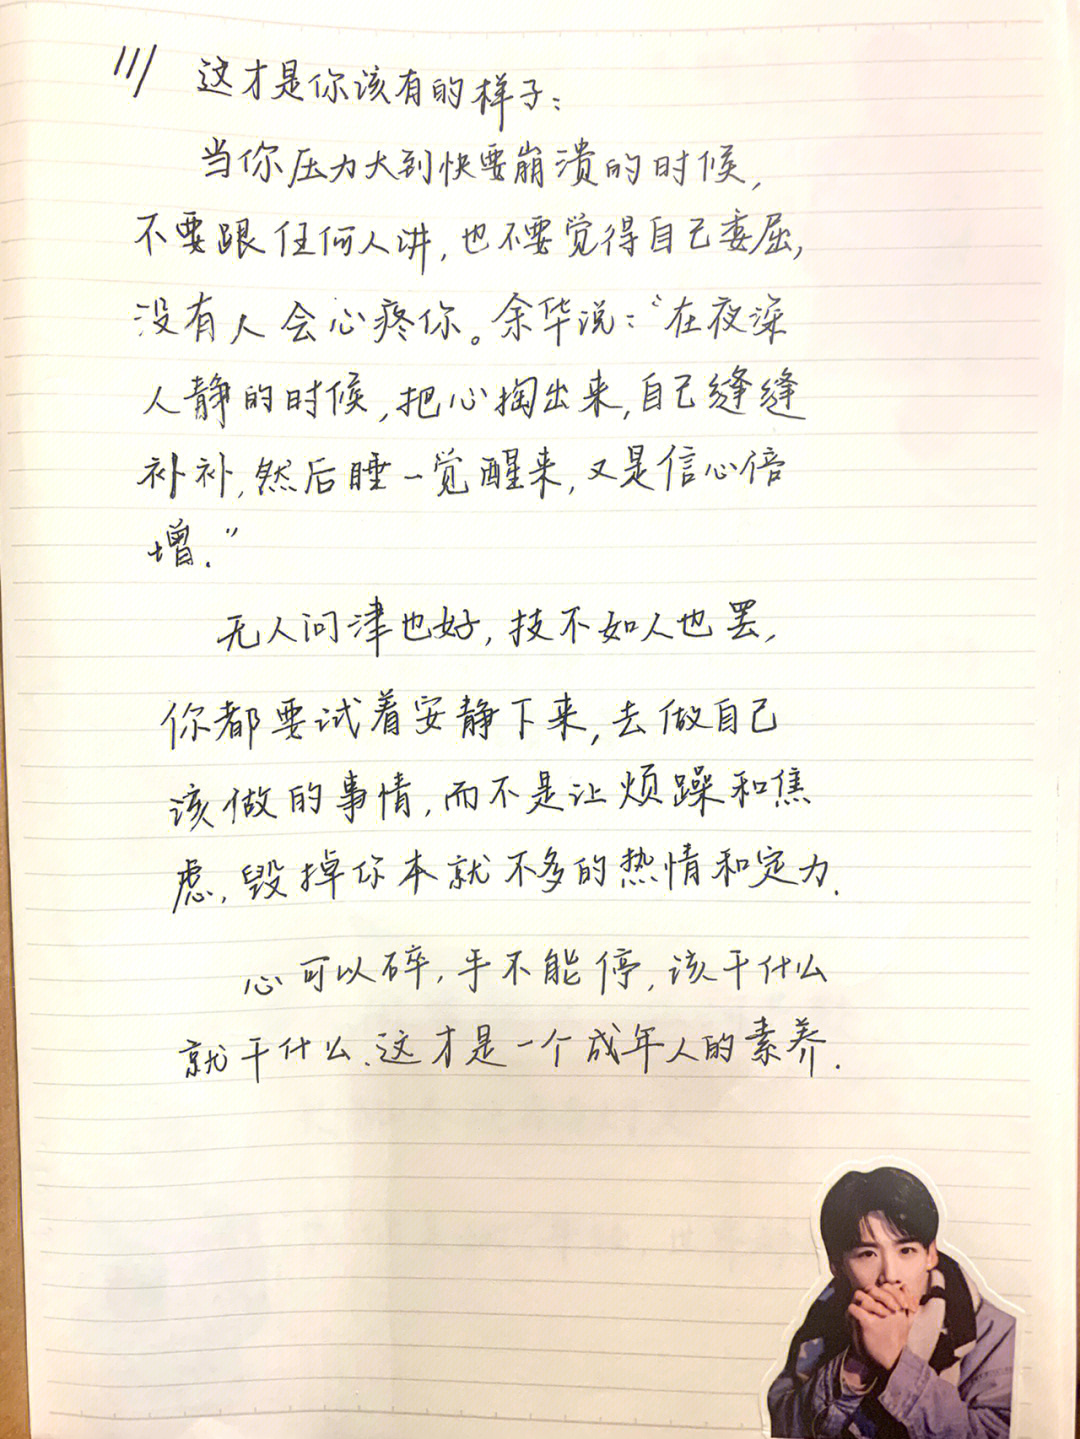 111 这才是你该有的样子：
当你压力大到快要崩溃的时候，
不要跟任何人讲，也不要觉得自己委屈，
没有人会心疼你。余华说：“在夜深
人静的时候，把心掏出来，自己缝缝
补补，然后睡一觉醒来，又是信心倍
增．”
无人问津也好，技不如人也罢，
你都要试着安静下来，去做自己
该做的事情，而不是让烦躁和焦
虑，毁掉你本就不多的热情和定力．
心可以碎，手不能停，该干什么
就干什么、这才是一个成年人的素养．